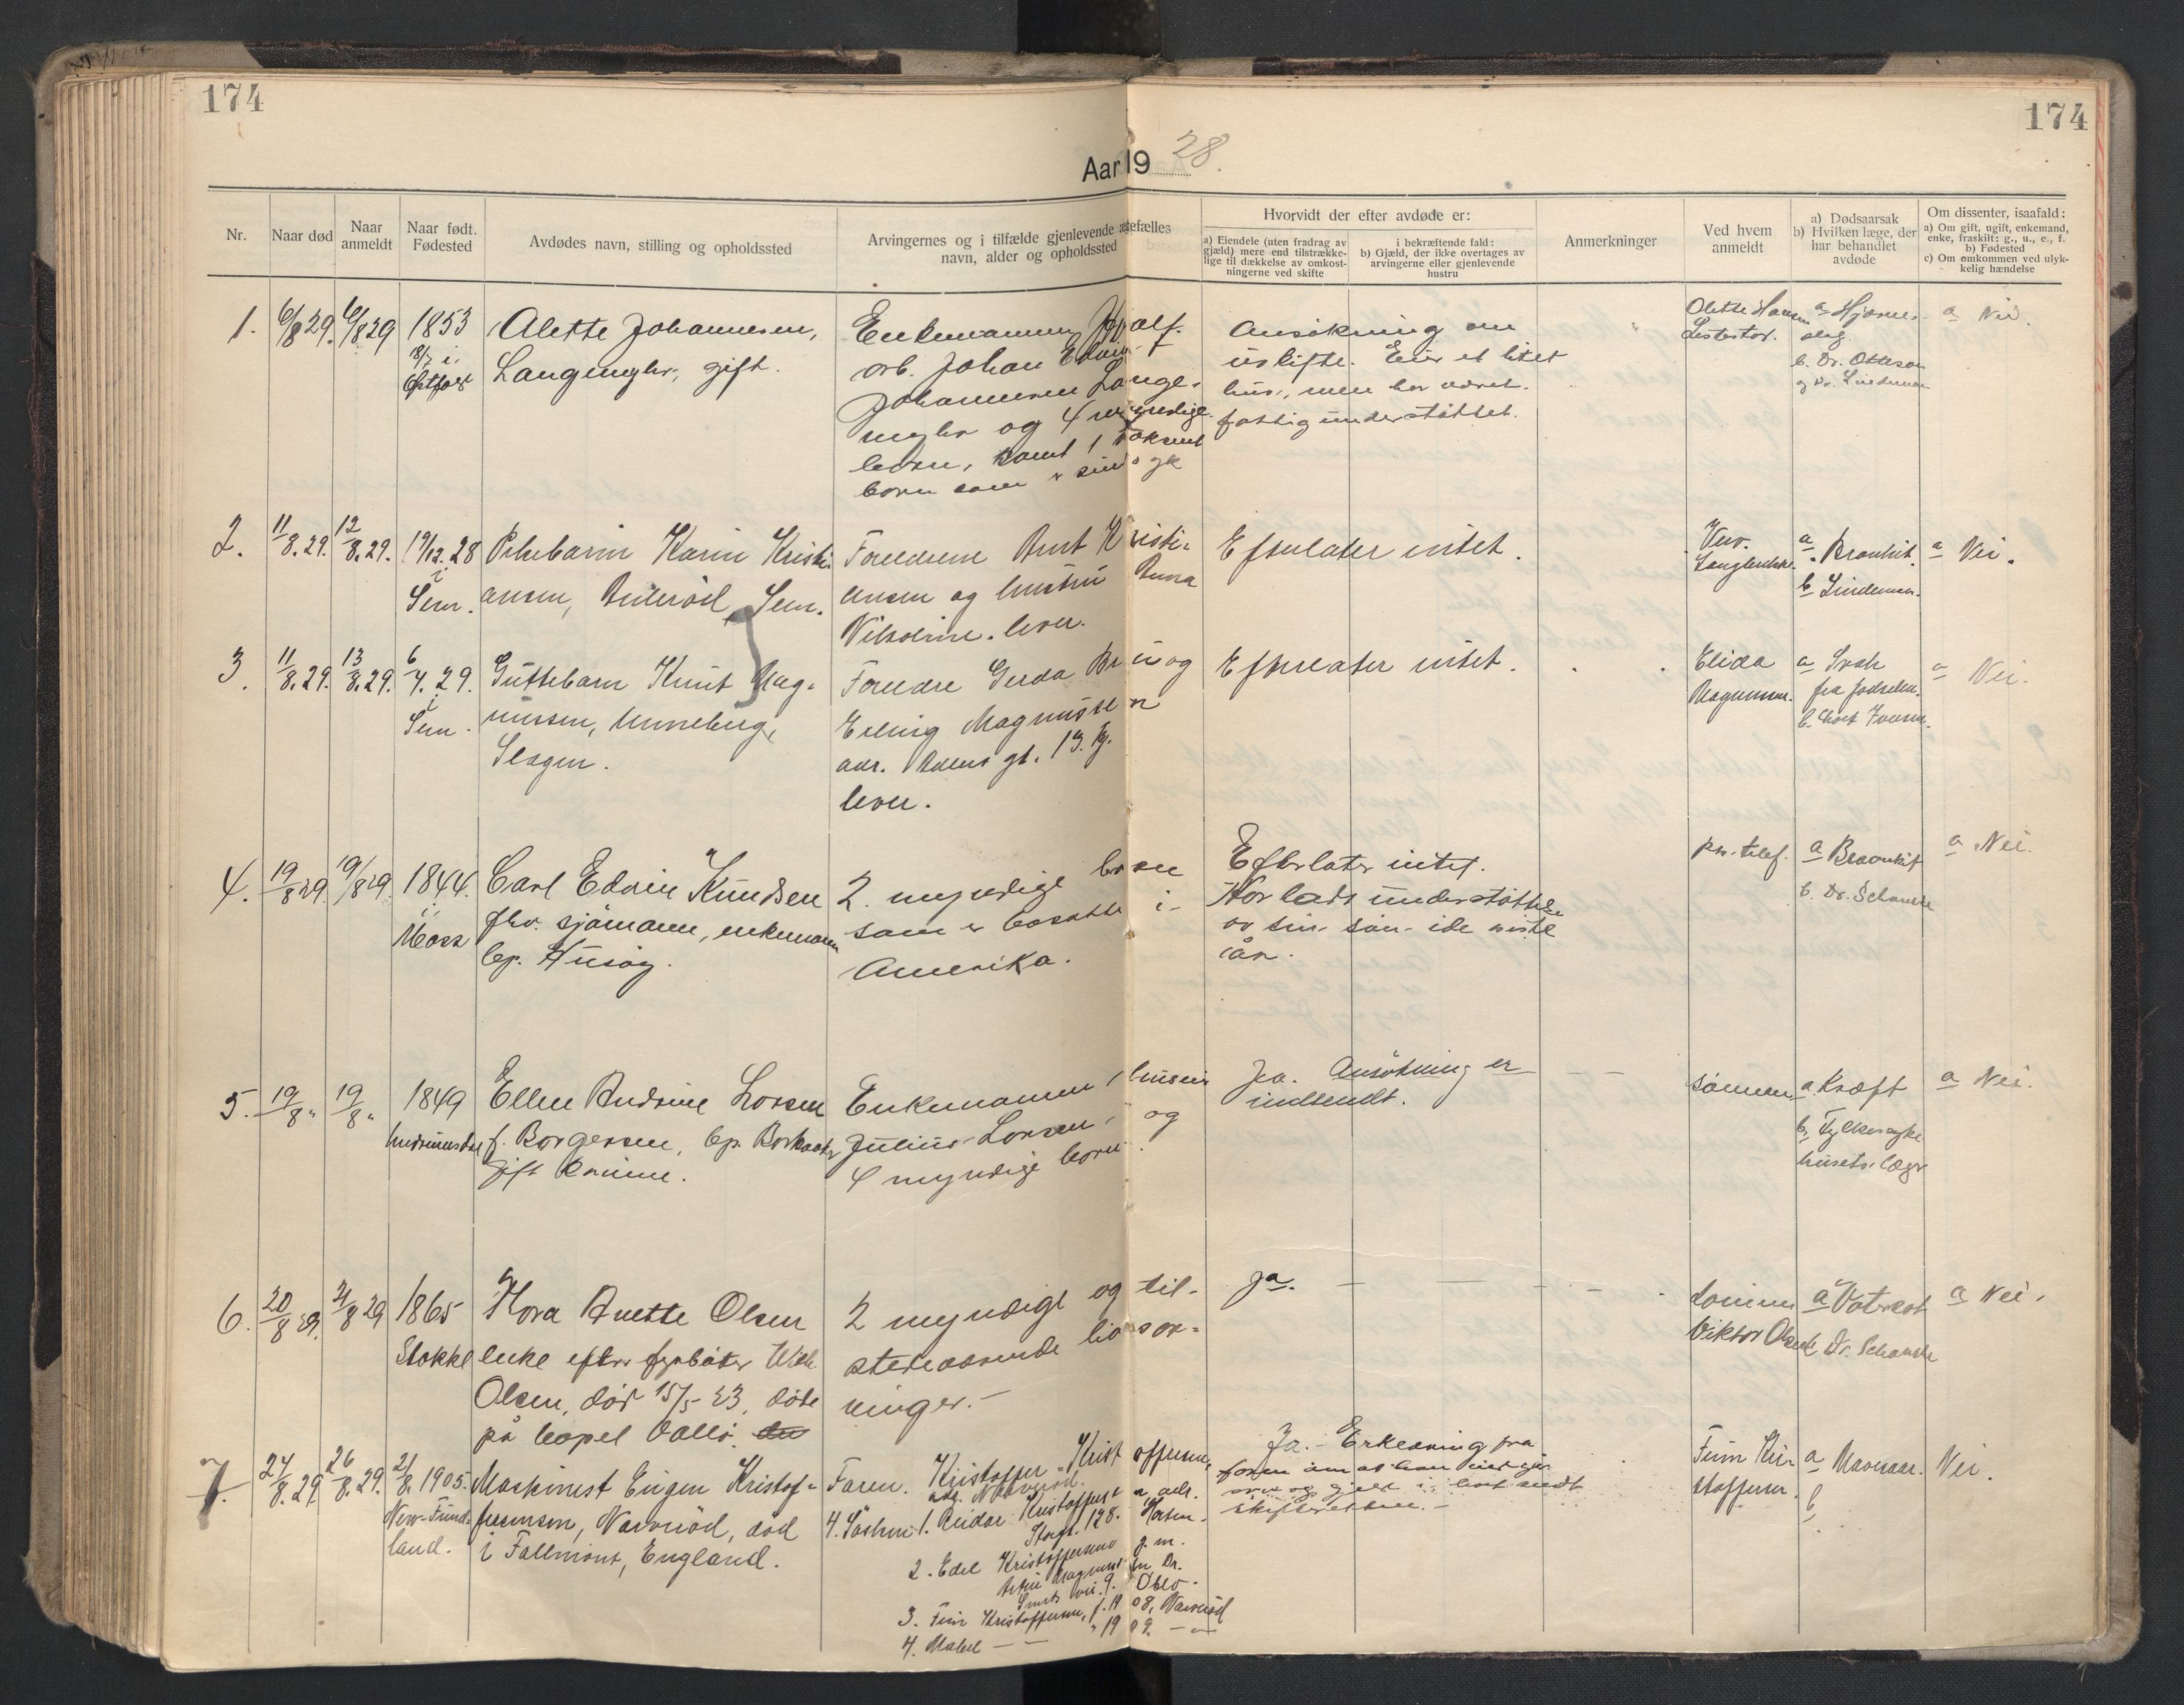 174
174
Aar 19 28.
Nr.
Naar død
Naar anmeldt
Naar født. Fødested
Avdødes navn, stilling og opholdssted
Arvingernes og i tilfælde gjenlevende ægtefælles
navn, alder og opholdssted
Hvorvidt der efter avdøde er:
a) Eiendele (uten fradrag av
gjæld) mere end tilstrække-
lige til dækkelse av omkost-
ningerne ved skifte
i bekræftende fald:
b) Gjæld, der ikke overtages av
arvingerne eller gjenlevende
hustru
Anmerkninger
Ved hvem
anmeldt
a) Dødsaarsak
b) Hvilken læge, der
har behandlet
avdøde
Om dissenter, isaafald:
a) Om gift, ugift, enkemand,
enke, fraskilt: g., u., e., f.
b) Fødested
c) Om omkommen ved ulyk-
kelig hændelse
1. 6/8 29. 6/8 29 1853
18/3 i
Østfold
Alette Johannesen,
gift.
Enkemannen
arb. Johan Edvin
Johannesen Lange-
og 4 myndige
samt 1 voksent
barn som er
Ansøkning om
uskifte. Eier et litet
hus, men har været
fattigunderstøttet.
Alette Hansen
a Hjerne-
slag
b. Dr. Ottesen
og Dr. Lindeman
a Nei.
2. 11/8. 29. 12/8. 29. 19/12. 28
i
Sem.
Pikebarn Karin Kristi-
ansen, Sem.
Foreldrene Arnt Kristi-
ansen og hustru Anna
Nikoline. lever.
Efterlater intet.
a Bronkit.
b Lindeman.
a Nei.
3. 11/8. 29. 13/8. 29. 6/4. 29.
i
Sem.
Guttebarn Knut Mag-
nussen, Unneberg,
Slagen.
Foreldre Gerda Bruu og
Erling Magnussen
adr. gt. 13. Tbg.
lever.
Efterlater intet.
Elida
Magnussen.
a Svak
fra fødselen.
a Nei.
4. 19/8 29. 19/8 29. 1844.
i
Moss
Carl Edvin Knudsen
fhv. sjømann, enkemann
bp. Husøy.
2 myndige barn
som er bosatte i
Amerika.
Efterlater intet.
Har hadt understøttelse
av sin søn i de siste
år.
pr. telef.
a Bronkit
b. Dr. Schanche
a Nei.
5. 19/8 " 19/8 " 1849
Ellen Andrine Larsen
f. Borgersen, bp.
gift kvinne.
Enkemannen
Julius Larsen, og
4 myndige barn.
Ja. Ansøkning er
indsendt.
sønnen
a Kræft
b. Fylkessyke-
husets læge
a Nei.
6. 20/8 29. 21/8 29 1865
Stokke
Hora Anette Olsen
enke efter fyrbøter Wilh.
Olsen, død 15/5-23, døde
på kapel Vallø.
2 myndige og til-
stedeværende livsarv-
inger.
Ja.
Viktor Olsen
a Vatersot
b Dr. Schanche
a Nei.
7. 24/8. 29. 26/8. 29. 21/8. 1905.
New-Fund-
land.
Maskinist Eugen Kristof-
fersen, Narverød, død
i Fallmout, England.
Faren. Kristoffer Kristoffersen,
adr. Narverød.
4. Søsken 1. Reidar Kristoffersen, adr.
Storgt. 128. Horten.
2. Edel Kristoffersen g. m.
9. Oslo.
3. Finn Kristoffersen, f. 1908, Narverød
4. Mabel — — " 1909. — —
Ja. - Erklæring fra
faren om at han
arv og gjeld indsendt
skifteretten. -
Finn Kri-
stoffersen.
a
b
Nei.